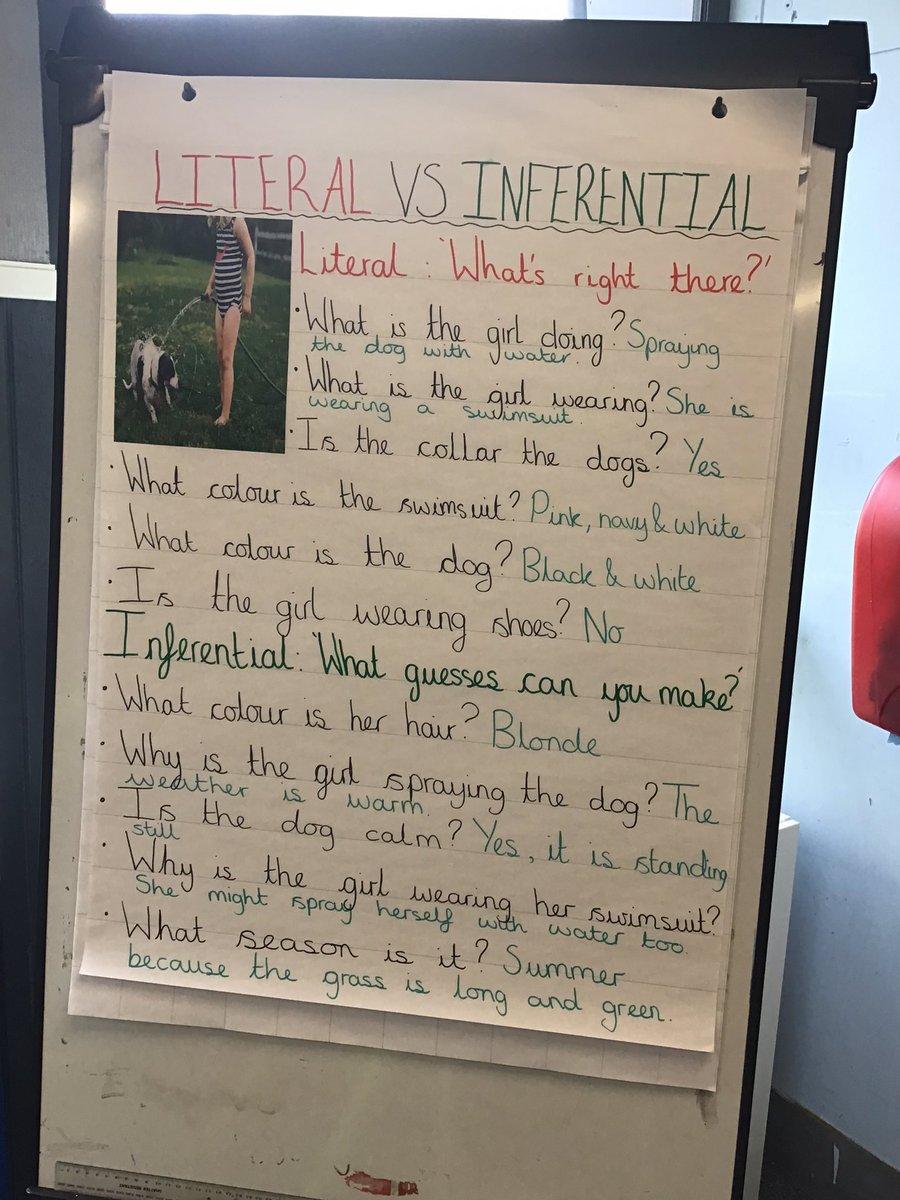 LITERAL VS INFERENTIAL
Literal : 'What's right there?'
·What is the girl doing? Spraying
the dog with water.
·What is the girl wearing? She is
wearing a swimsuit.
·Is the collar the dogs? Yes
·What colour is the swimsuit? Pink, navy & white
·What colour is the dog? Black & white
·Is the girl wearing shoes? No
Inferential: 'What guesses can you make?'
·What colour is her hair? Blonde
·Why is the girl spraying the dog? The
weather is warm.
·Is the dog calm? Yes, it is standing
still
·Why is the girl wearing her swimsuit?
She might spray herself with water too.
·What season is it? Summer
because the grass is long and green.